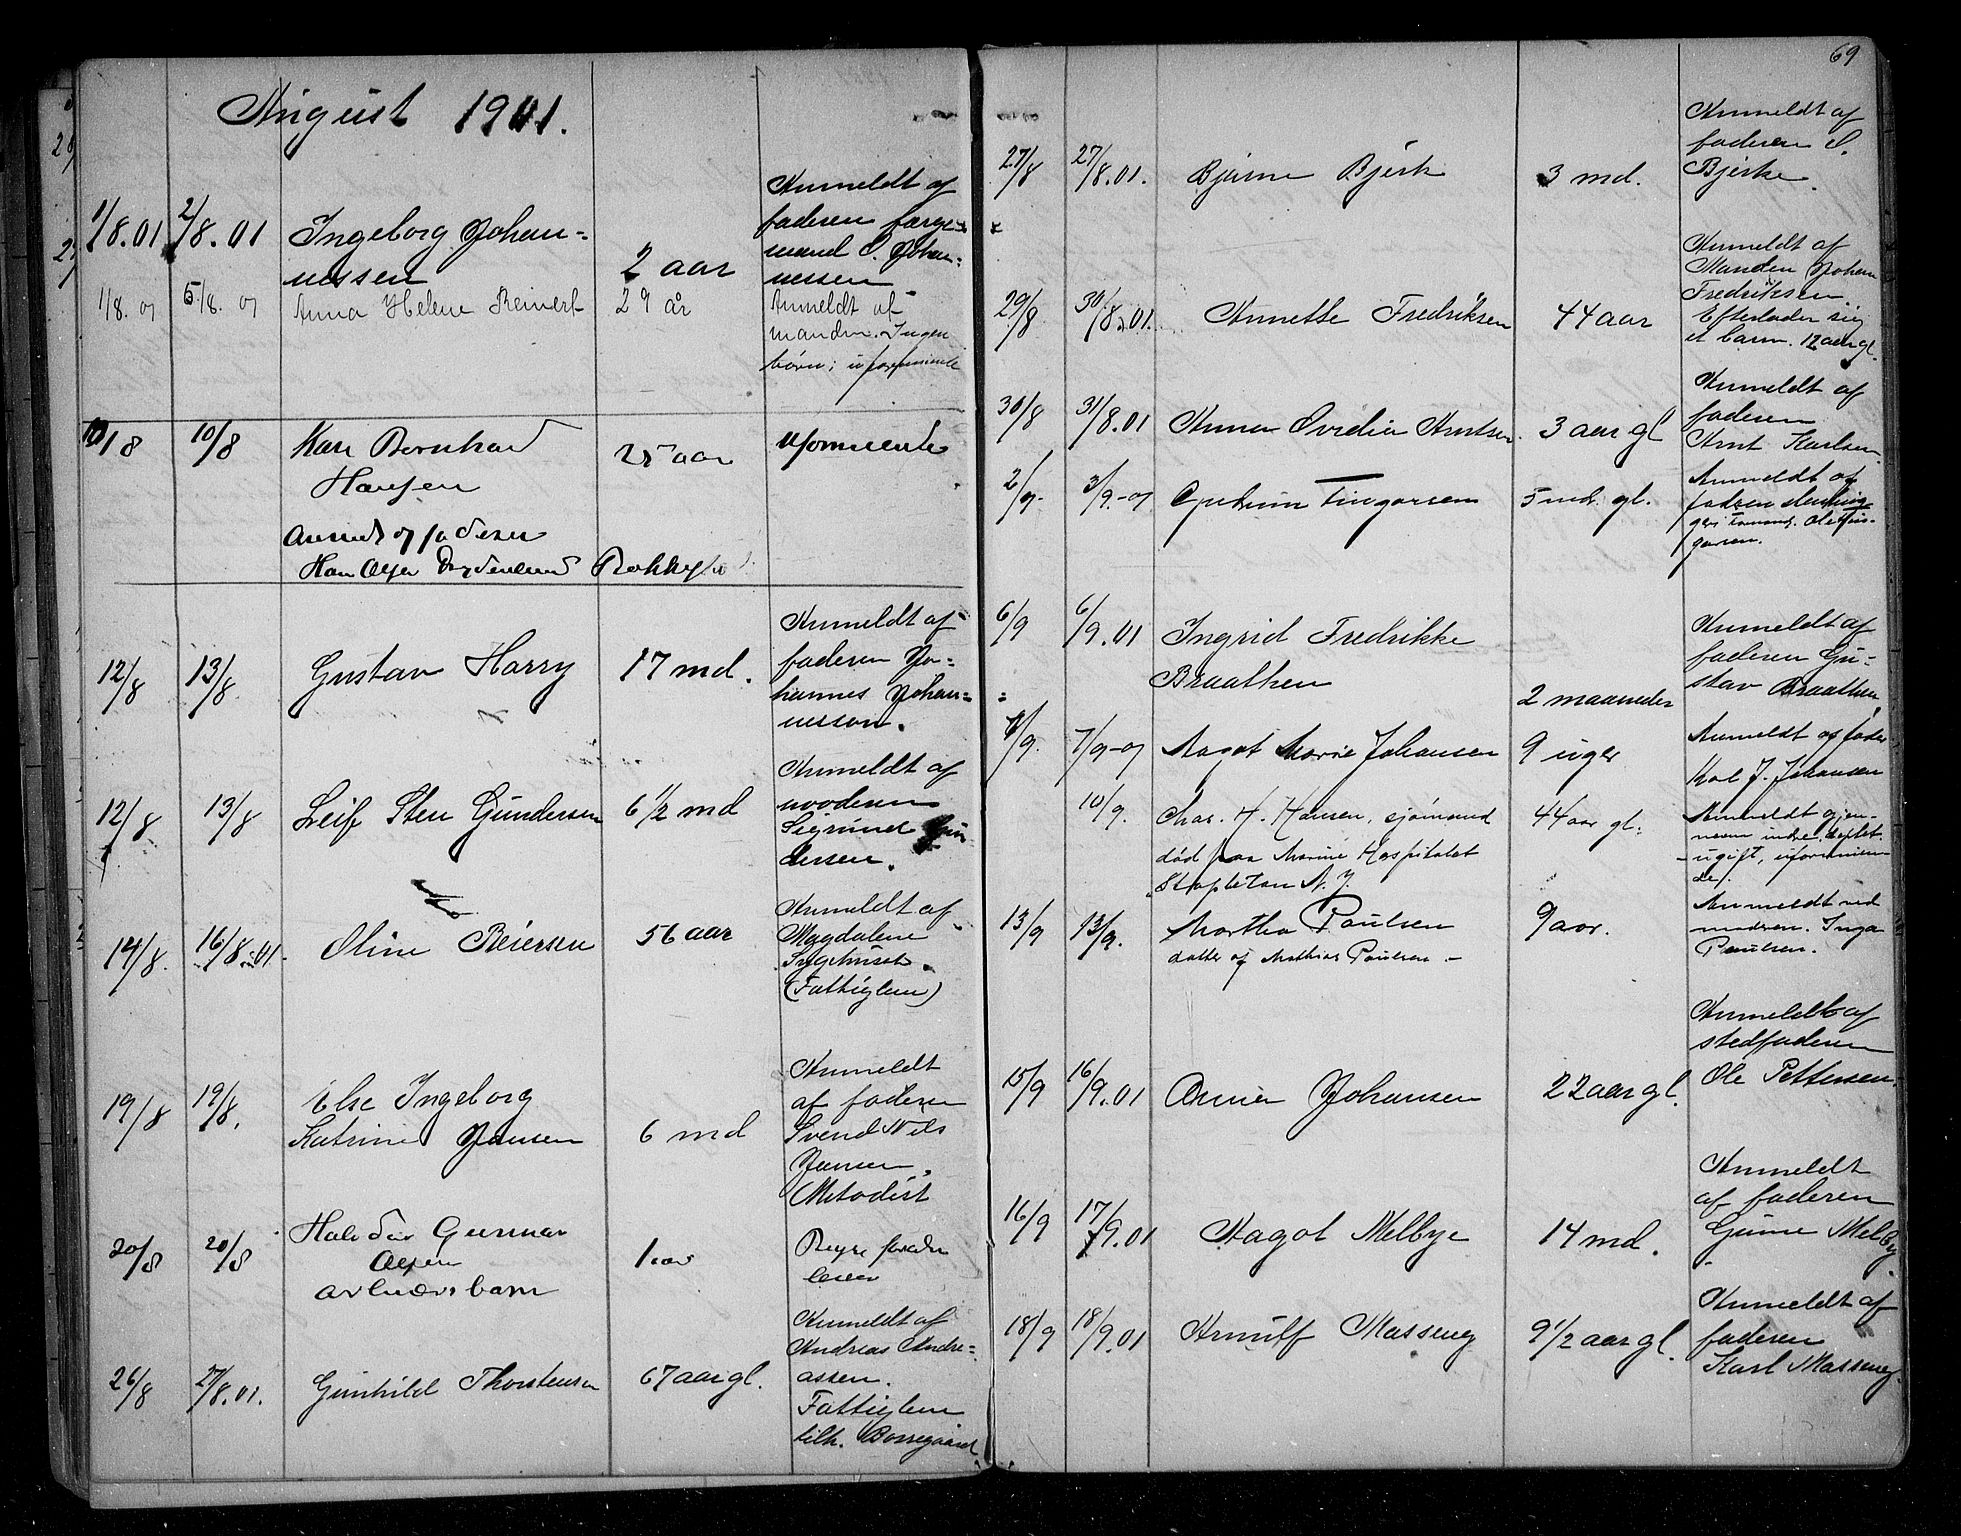 August 1901.
1/8.01 2/8.01 Ingeborg Johan-
nessen 2 aar
Anmeldt af
faderen farge-
mand C. Johan-
nessen
1/8. 01 5/8. 01 Anna Helene Reinert 29 år
Anmeldt af
manden. Ingen
børn; uformuende
10/8 10/8 Karl Bernhard
Hansen 25 aar uformuende
Anmeldt af faderen
Hans Olsen
12/8 13/8. Gustav Harry 17 md.
Anmeldt af
faderen Jo-
hannes Johan-
nesson.
12/8 13/8 Leif Sten Gundersen 6 1/2 md
Anmeldt af
moderen
Sigrund Gun
dersen.
14/8. 16/8.01. Oline Reiersen 56 aar
Anmeldt af
Magdalene
Sygehuset.
(Fattiglem)
19/8 19/8. Else Ingeborg
Katrine Jansen 6 md
Anmeldt
af faderen
Svend Nils
Jansen,
Metodist
20/8 20/8 Halvdan Gunnar
Olsen
arbeidersbarn 1 aar
26/8 27/8.01. Gunhild Thorstensen 67 aar gl.
Anmeldt af
Andreas Andre-
assen.
Fattiglem
tilh. Borregaard
69
27/8 27/8.01. Bjarne Bjerk 3 md.
Anmeldt af
faderen C.
Bjerke.
29/8 30/8.01. Annette Fredriksen 44 aar
Anmeldt af
Manden Johan
Fredriksen.
Efterlader sig
et barn. 12 aar gl.
30/8 31/8.01 Anna Ovidia Arntsen. 3 aar gl
Anmeldt af
faderen
Arnt Karlsen.
2/9- 3/9.-01 Tingarsen 5 md. gl.
Anmeldt af
fadren
6/9 6/9.01 Ingrid Fredrikke
Braathen 2 maaneder
Anmeldt af
faderen Gu-
stav Braathen
6/9. 7/9-01 Aagot Marie Johansen 9 uger
Anmeldt af fader
Karl J. Johansen
10/9. Chas. H. Hansen, sjømand 44 aar gl.
død paa Marine Hospitalet
Stapleton N. Y.
Anmeldt gjen-
nem indre. deptet.
- ugift, uformuen-
de/.
13/9 13/9. Martha Paulsen 9 aar.
datter af Mathias Paulsen.-
Anmeldt ved
modren. Inga
Paulsen.
15/9 16/9.01 Anna Johansen 22 aar gl.
Anmeldt af
stedfaderen
Ole Pettersen.
16/9 17/9.01 Aagot Melbye 14 md.
Anmeldt
af faderen
Gunne Melby.
18/9 18/9.01 Arnulf Masseng 9 1/2 aar gl.
Anmeldt af
faderen
Karl Masseng.